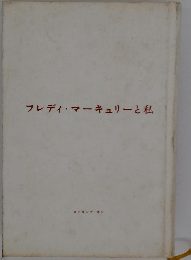 フレディ・マーキュリーと私